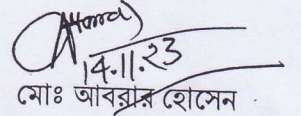 14.11.23
মোঃ আবরার হোসেন